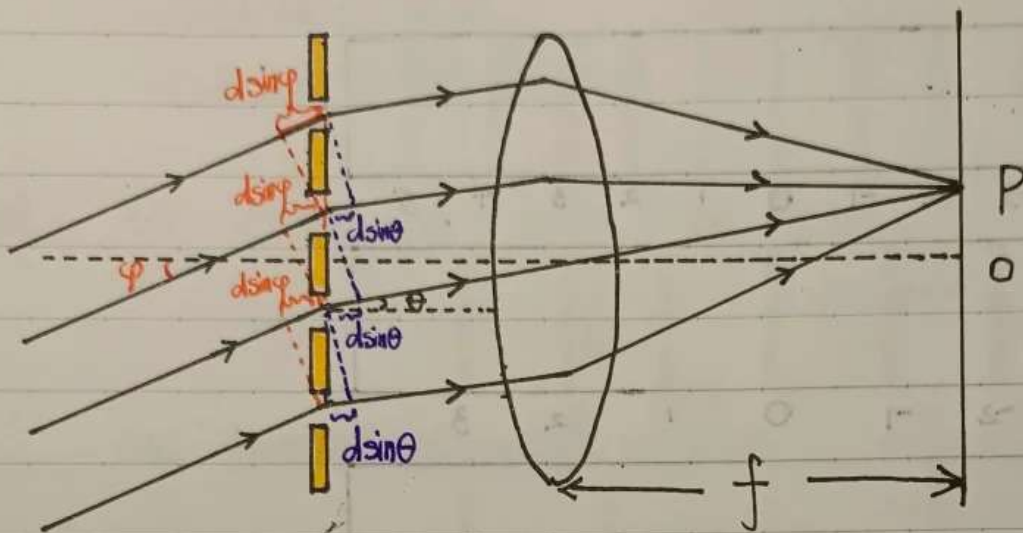 dsinφ
dsinφ
dsinθ
P
φ
O
dsinφ
θ
dsinθ
dsinθ
f